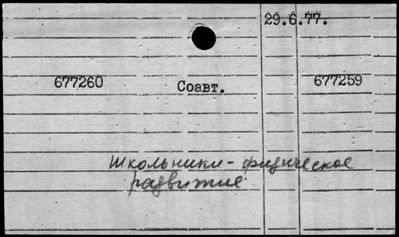 29.6.77.
677260 Соавт. 677259
Школьники - физическое
развитие